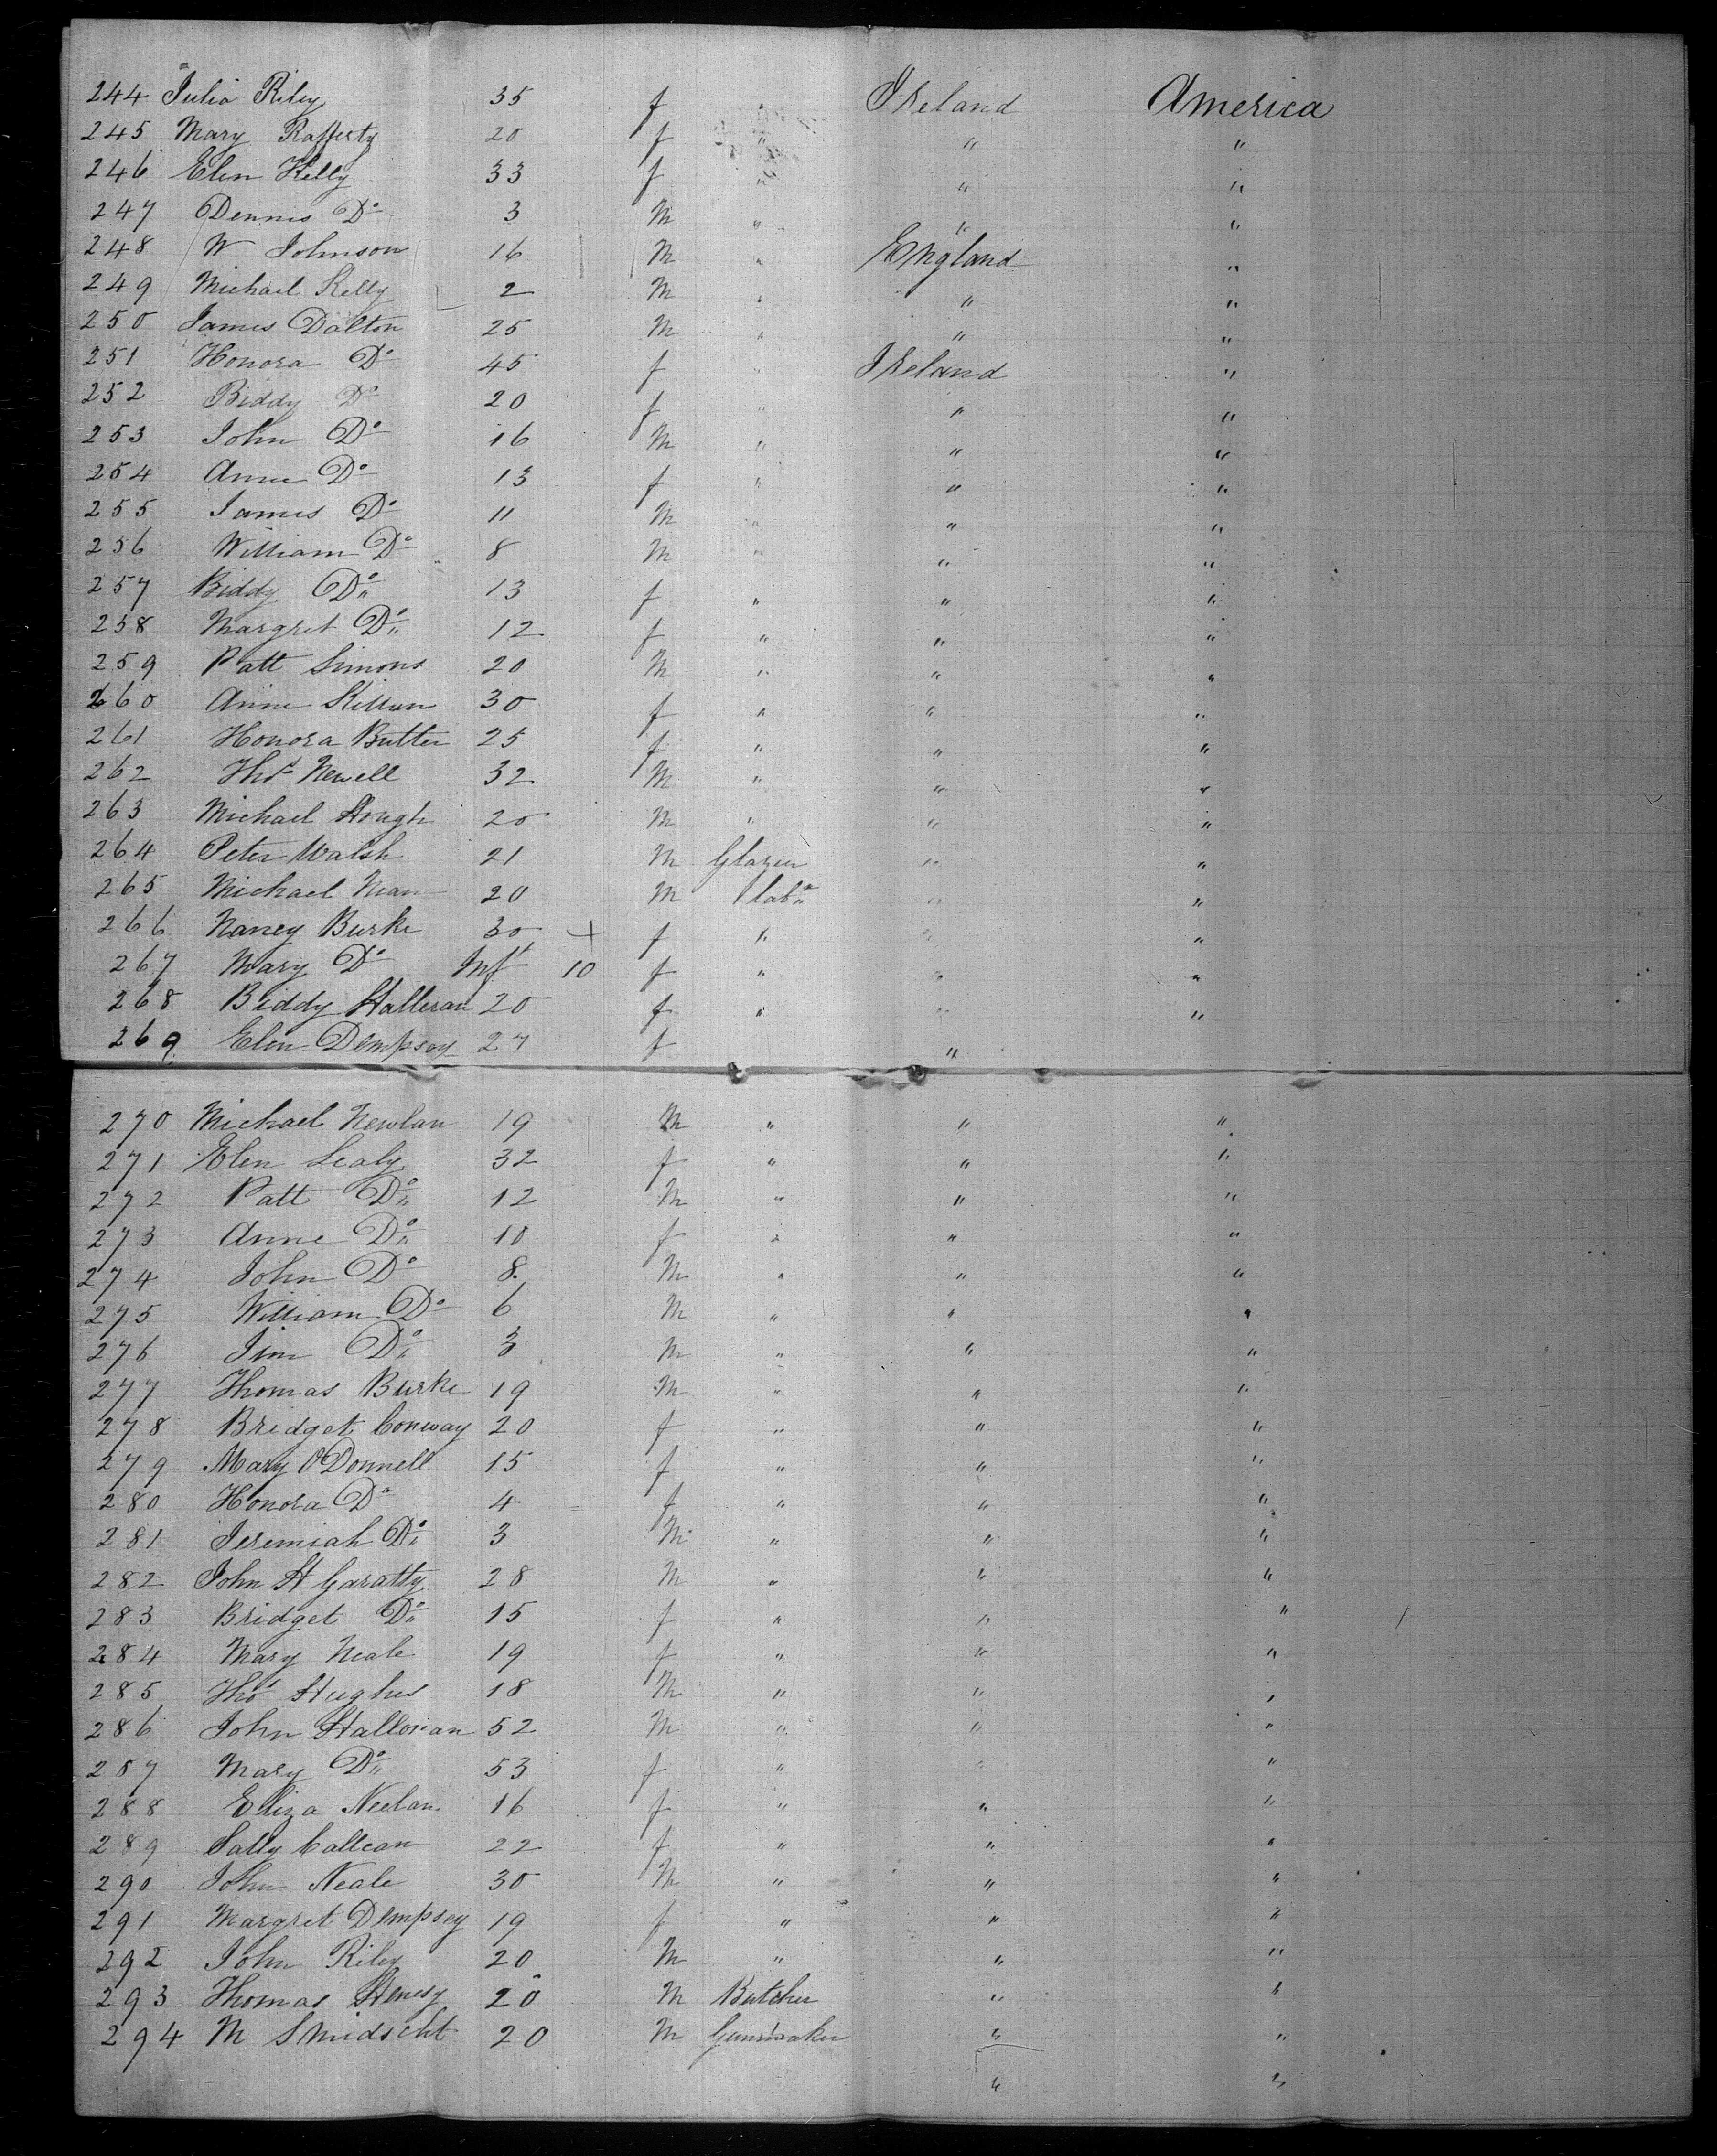 244 Julia Riley 35 f " Ireland America
245 Mary Rafferty 20 f " " "
246 Elen Kelly 33 f " " "
247 Dennis Do 3 M " " "
248 W Johnson 16 M " England "
249 Michael Kelly 2 M " " "
250 James Dalton 25 M " " "
251 Honora Do 45 f " Ireland "
252 Biddy Do 20 f " " "
253 John Do 16 M " " "
254 Anne Do 13 f " " "
255 James Do 11 M " " "
256 William Do 8 M " " "
257 Biddy Do 13 f " " "
258 Margret Do 12 f " " "
259 Patt Simons 20 M " " "
260 Anne 30 f " " "
261 Honora Butler 25 f " " "
262 Thos Newell 32 M " " "
263 Michael Hough 20 M " " "
264 Peter Walsh 21 M Glazier " "
265 Michael 20 M labr " "
266 Nancy Burke 30 + f " " "
267 Mary Do Inft 10 f " " "
268 Biddy Halleran 20 f " " "
269 Elen Dempsey 27 f "
270 Michael Newlan 19 M " " "
271 Elen Lealy 32 f " " "
272 Patt Do 12 M " " "
273 Anne Do 10 f " " "
274 John Do 8 M " " "
275 William Do 6 M " " "
276 Jim Do 3 M " " "
277 Thomas Burke 19 M " " "
278 Bridget Conway 20 f " " "
279 Mary O'Donnell 15 f " " "
280 Honora Do 4 f " " "
281 Jeremiah Do 3 M " " "
282 John H Garatty 28 M " " "
283 Bridget Do 15 f " " "
284 Mary Neale 19 f " " "
285 Thos Hughes 18 M " " "
286 John Halloran 52 M " " "
287 Mary Do 53 f " " "
288 Eliza Neelan 16 f " " "
289 Sally Callean 22 f " " "
290 John Neale 30 M " " "
291 Margret Dempsey 19 f " " "
292 John Riley 20 M " " "
293 Thomas Henesy 20 M Butcher " "
294 M Smidscht 20 M Gunsmaker " "
" "